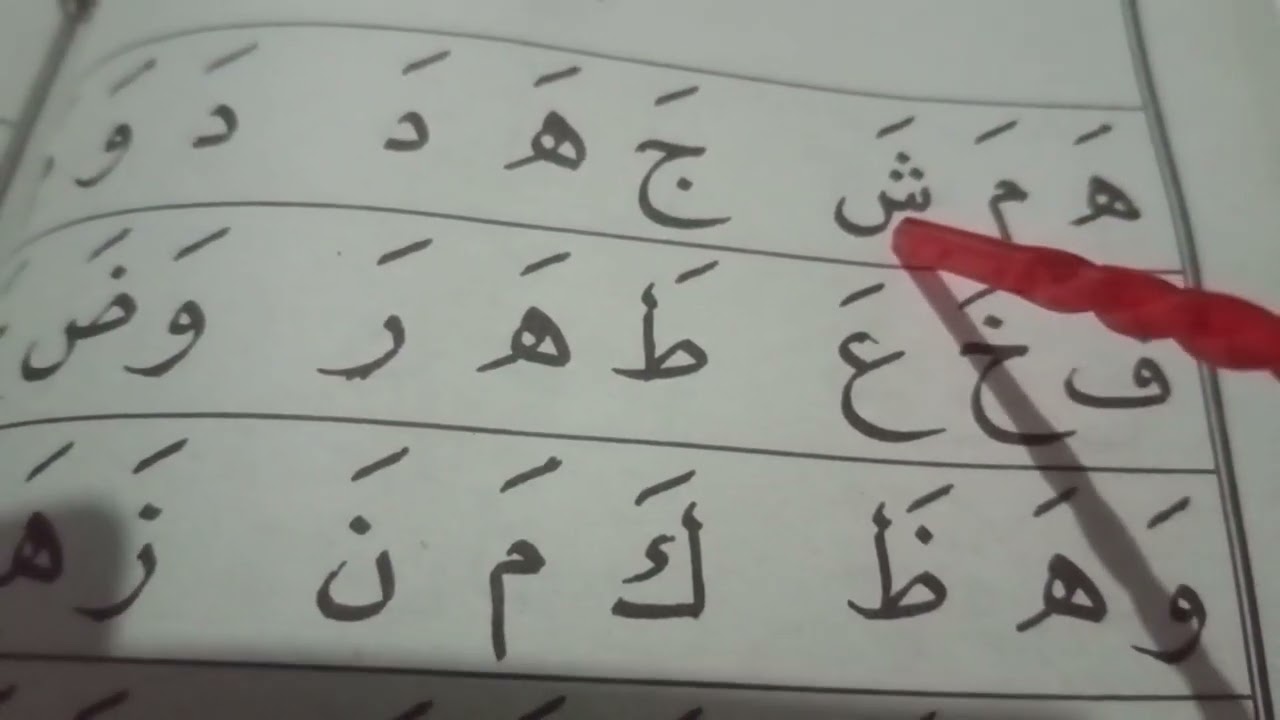 هَ مَ شَ جَ هَ دَ دَ وَ
فَ خَ عَ طَ هَ رَ وَ ضَ
وَ هَ ظَ كَ مَ نَ زَ هَ